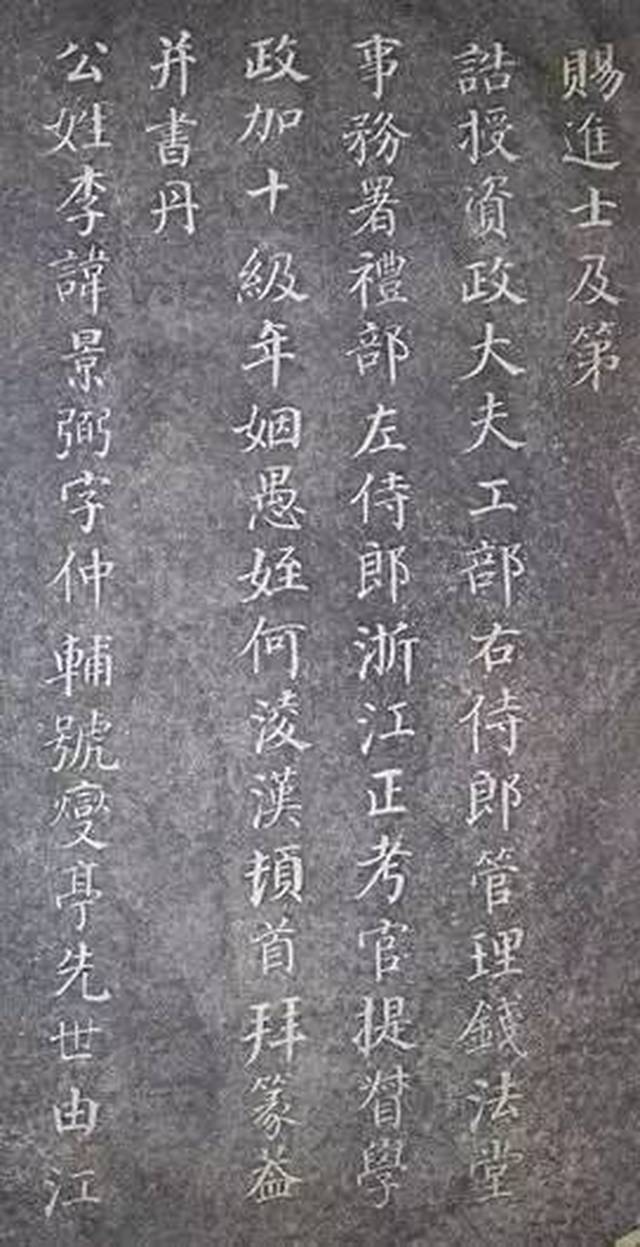 賜進士及第
誥授資政大夫工部右侍郎管理錢法堂
事務署禮部左侍郎浙江正考官提督學
政加十級年姻愚姪何淩漢頓首拜篆益
并書丹
公姓李諱景弼字仲輔號燮亭先世由江